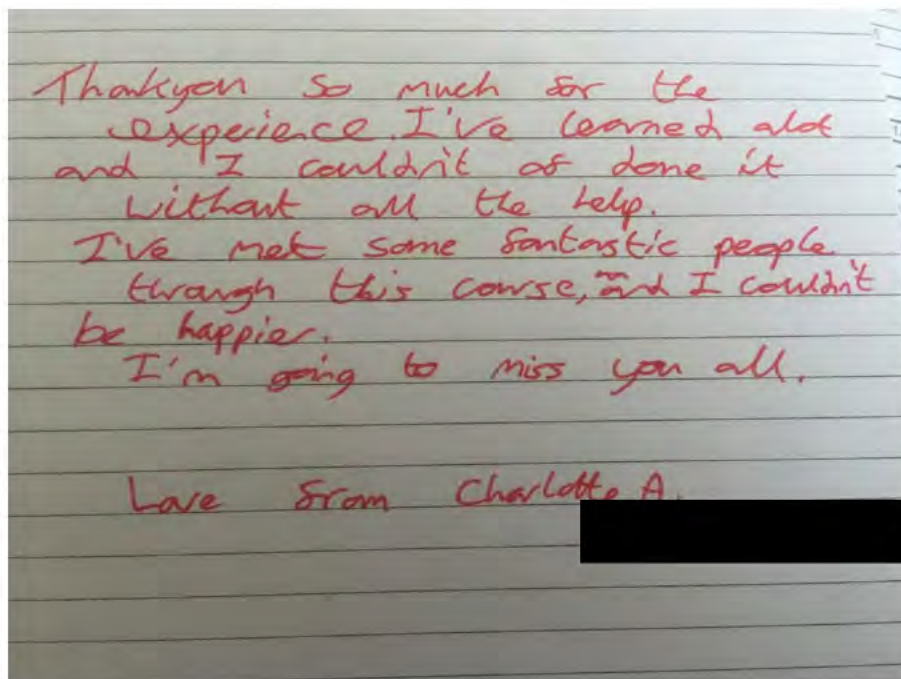 Thankyou so much for the
experience. I've learned alot
and I couldn't of done it
without all the help.
I've met some fantastic people
through this course, and I couldn't
be happier.
I'm going to miss you all.
Love from Charlotte A.